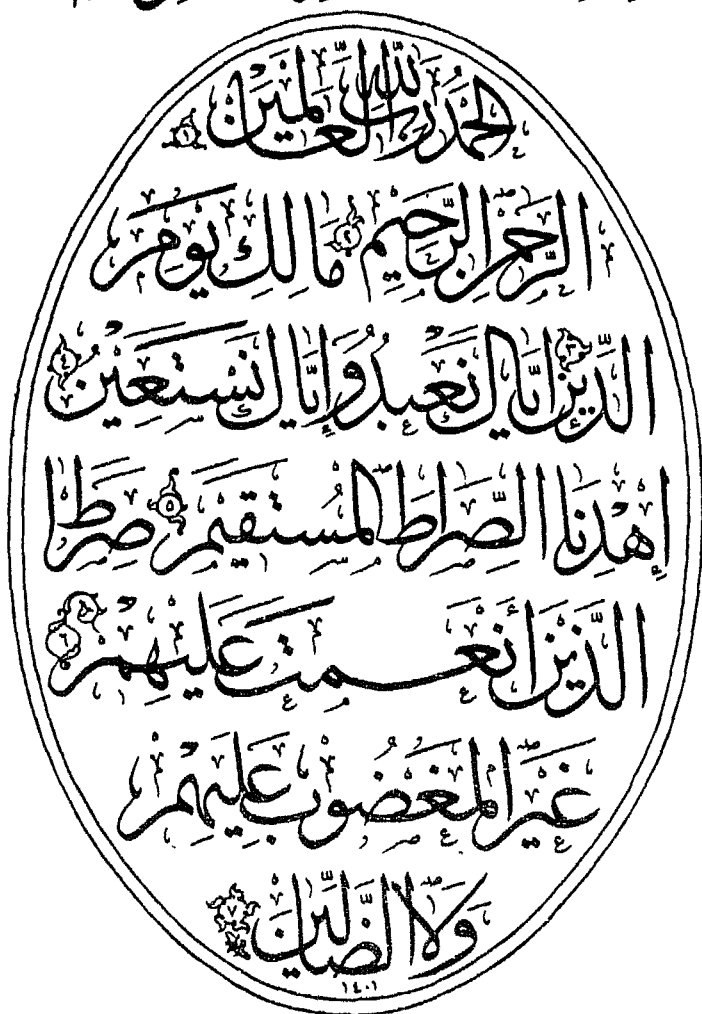 الحمد لله رب العالمين ١
الرحمن الرحيم ٢ مالك يوم
الدين ٣ إياك نعبد وإياك نستعين ٤
إهدنا الصراط المستقيم ٥ صراط
الذين أنعمت عليهم ٦
غير المغضوب عليهم
ولا الضالين ٧
١٤٠١